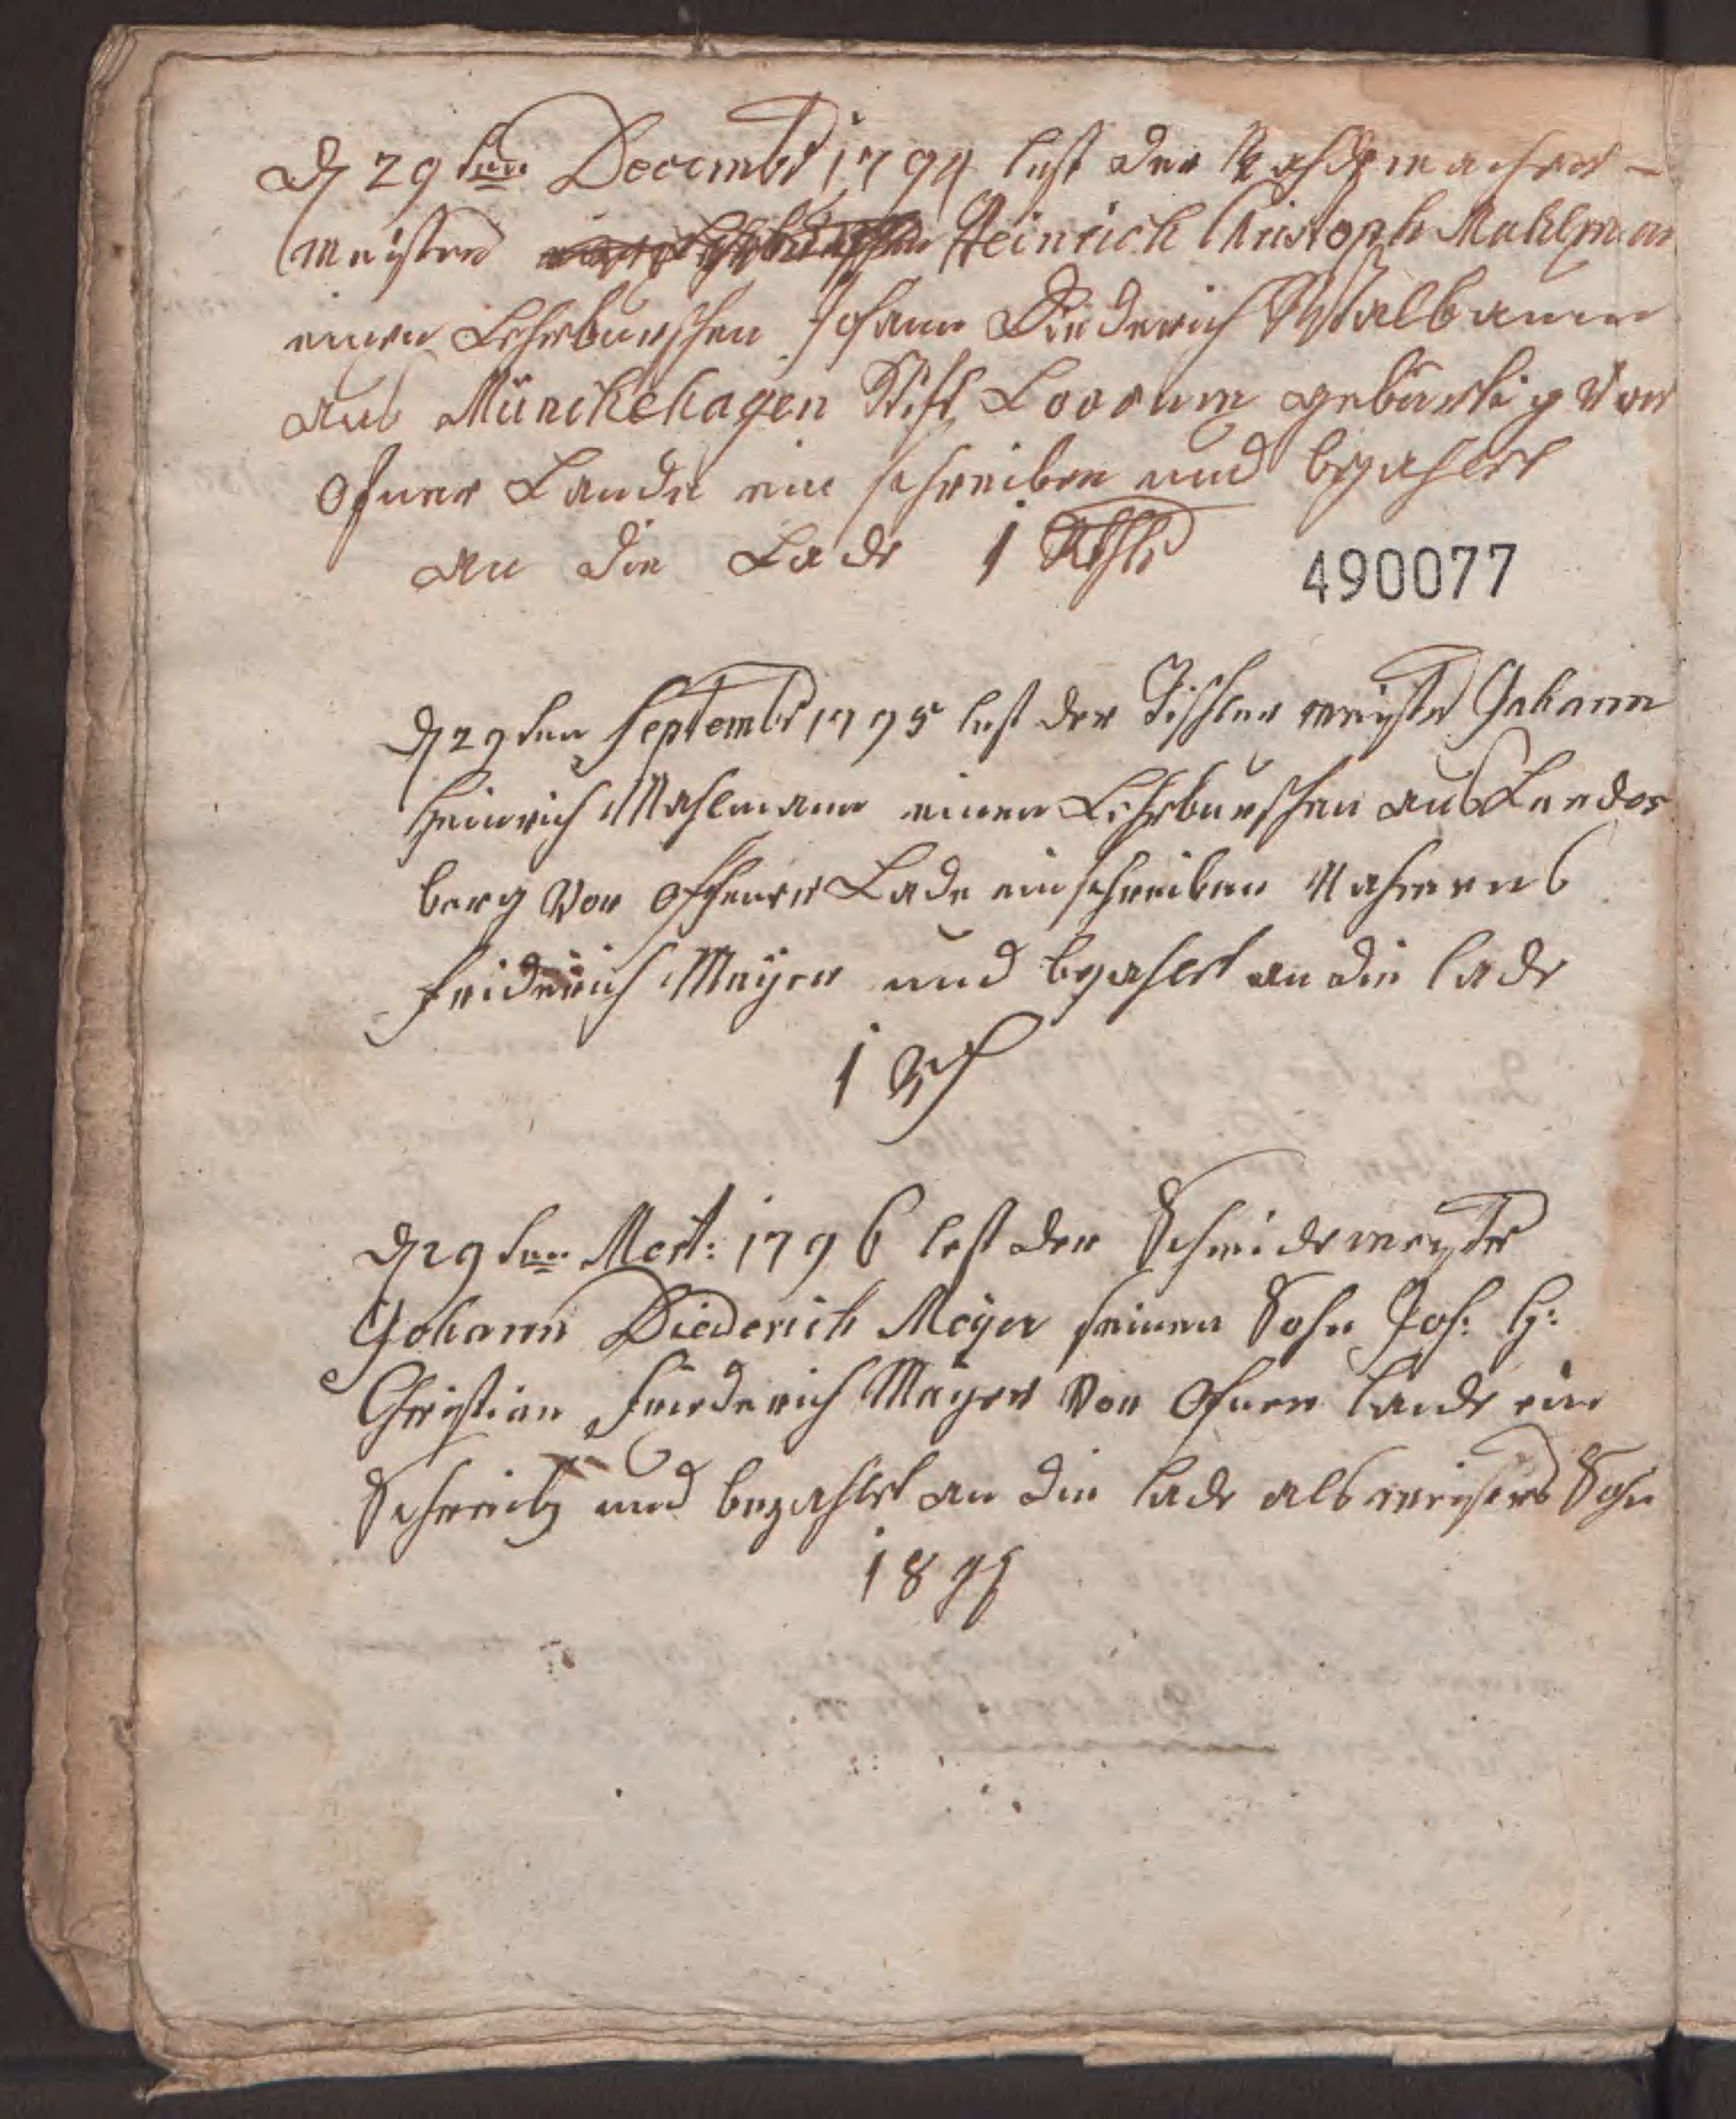 D 29ten Decembr 1794 lest der Rademacher-
meister Heinrich Christoph Mahlman
einen Lehrburschen Johann Diederich Walbaum
aus Münckehagen Stift Loccum gebürtig Vor
ofner Laude ein schreiben und bezahlet
an die Lade 1 Rthlr
490077
D 29ten Septembr 1795 lest der Tischler meister Johann
Heinrich Mahlmann einen Lehrburschen aus Leedes
berg Vor offener Lade einschreiben Nahmens
Friderich Meyer und bezahlet an die lade
1 Rth
D 29ten Mert: 1796 lest der Schneidermeyster
Johann Diederich Meyer seinen Sohn Joh: H:
Christian Friederich Meyer Vor Ofner Laude ein
Schreib und bezahlet an die lade als meisters Sohn
18 gg